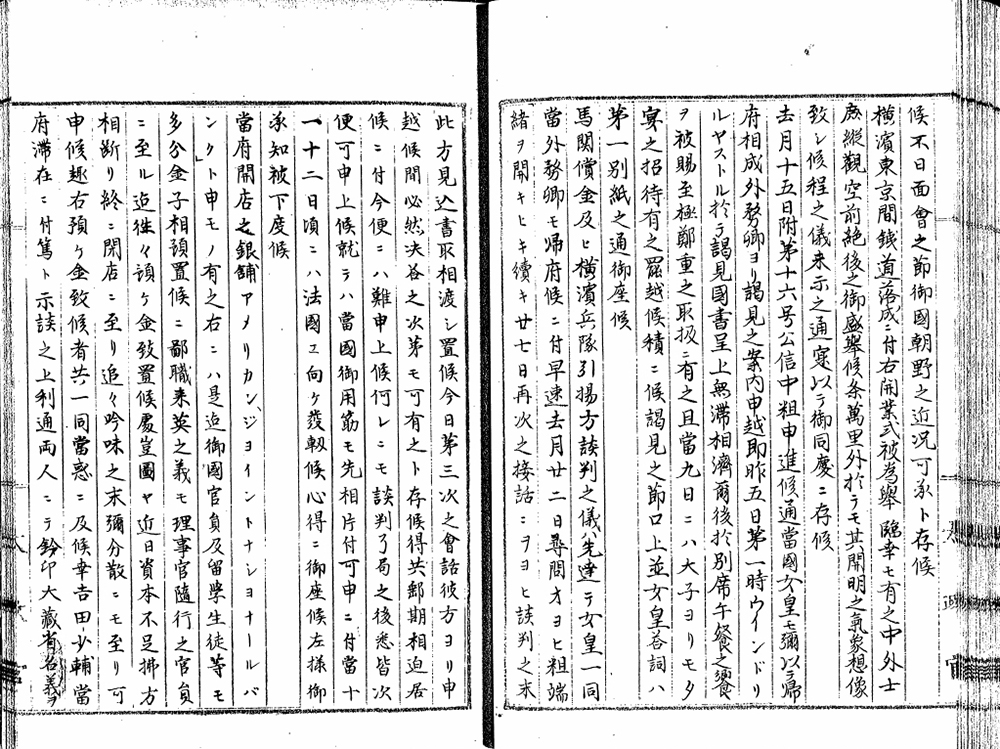 候不日面會之節御國朝野之近況可承ト存候
横濱東京間鐵道落成ニ付右開業式被為舉 臨幸モ有之中外士
庶縦觀空前絶後之御盛舉候条萬里外於テモ其開明之氣象想像
致シ候程之儀来示之通寔以テ御同慶ニ存候
去月十五日附第十六号公信中粗申進候通當國女皇モ彌以テ帰
府相成外務卿ヨリ謁見之案内申越即昨五日第一時ウインドリ
ルヤストル於テ謁見國書呈上無滞相濟爾後於別席午餐之饗
ヲ被賜至極鄭重之取扱ニ有之且當九日ニハ大子ヨリモタ
宴之招待有之罷越候積ニ候謁見之節口上並女皇荅詞ハ
第一別紙之通御座候
馬関償金及ヒ横濱兵隊引揚方談判之儀ハ先達テ女皇一同
當外務卿モ帰府候ニ付早速去月廿二日尋問オヨヒ粗端
緒ヲ開キヒキ續キ廿七日再次之接話ニヲヨヒ談判之末
此方見込書取相渡シ置候今日第三次之會話彼方ヨリ申
越候間必然决答之次第モ可有之ト存候得共郵期相迫居
候ニ付今便ニハ難申上候何レニモ談判了局之後悉皆次
便可申上候就テハ當國御用筋モ先相片付可申ニ付當十
一十二日頃ニハ法國エ向ケ發軔候心得ニ御座候左様御
承知被下度候
當府開店之銀舗アメリカンジヨイントナシヨナールバ
ンク」ト申モノ有之右ニハ是迄御國官負及留學生徒等モ
多分金子相預置候ニ鄙職来英之義モ理事官隨行之官負
ニ至ル迄徃々預ケ金致置候處豈圖ヤ近日資本不足拂方
相断リ終ニ閉店ニ至リ追々吟味之末彌分散ニモ至リ可
申候趣右預ケ金致候者共一同當惑ニ及候幸吉田少輔當
府滞在ニ付篤ト示談之上利通両人ニテ鈐印大藏省名義ヲ